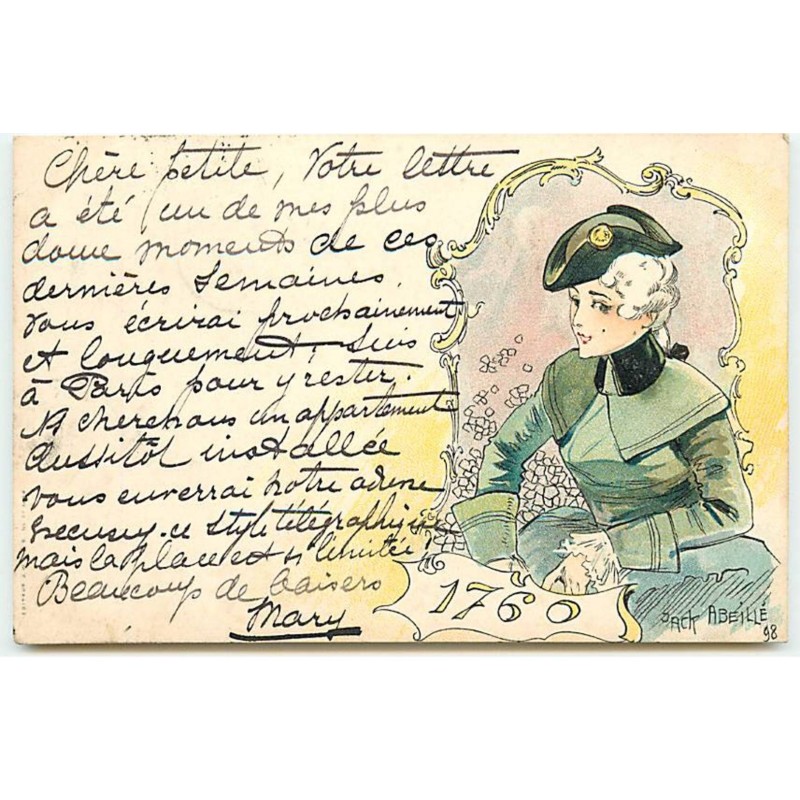 Chère petite, Votre lettre
a été un de mes plus
doux moments de ces
dernières semaines.
Vous écrirai prochainement
et longuement, Suis
à Paris pour y rester.
Ns cherchons un appartement
Aussitôt installée
vous enverrai notre adresse
Excusez ce style télégraphique
mais la place est si limitée!
Beaucoup de baisers
Mary
1760
JACK ABEILLÉ
98